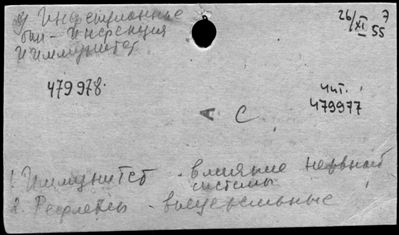 у Инфекционные
бол - Инфекция
и иммунитет
26/XI 55
7
479978.
чит.
479977
А С
1. Иммунитет - влияние нервной
системы
2. Рефлексы - висцеральные